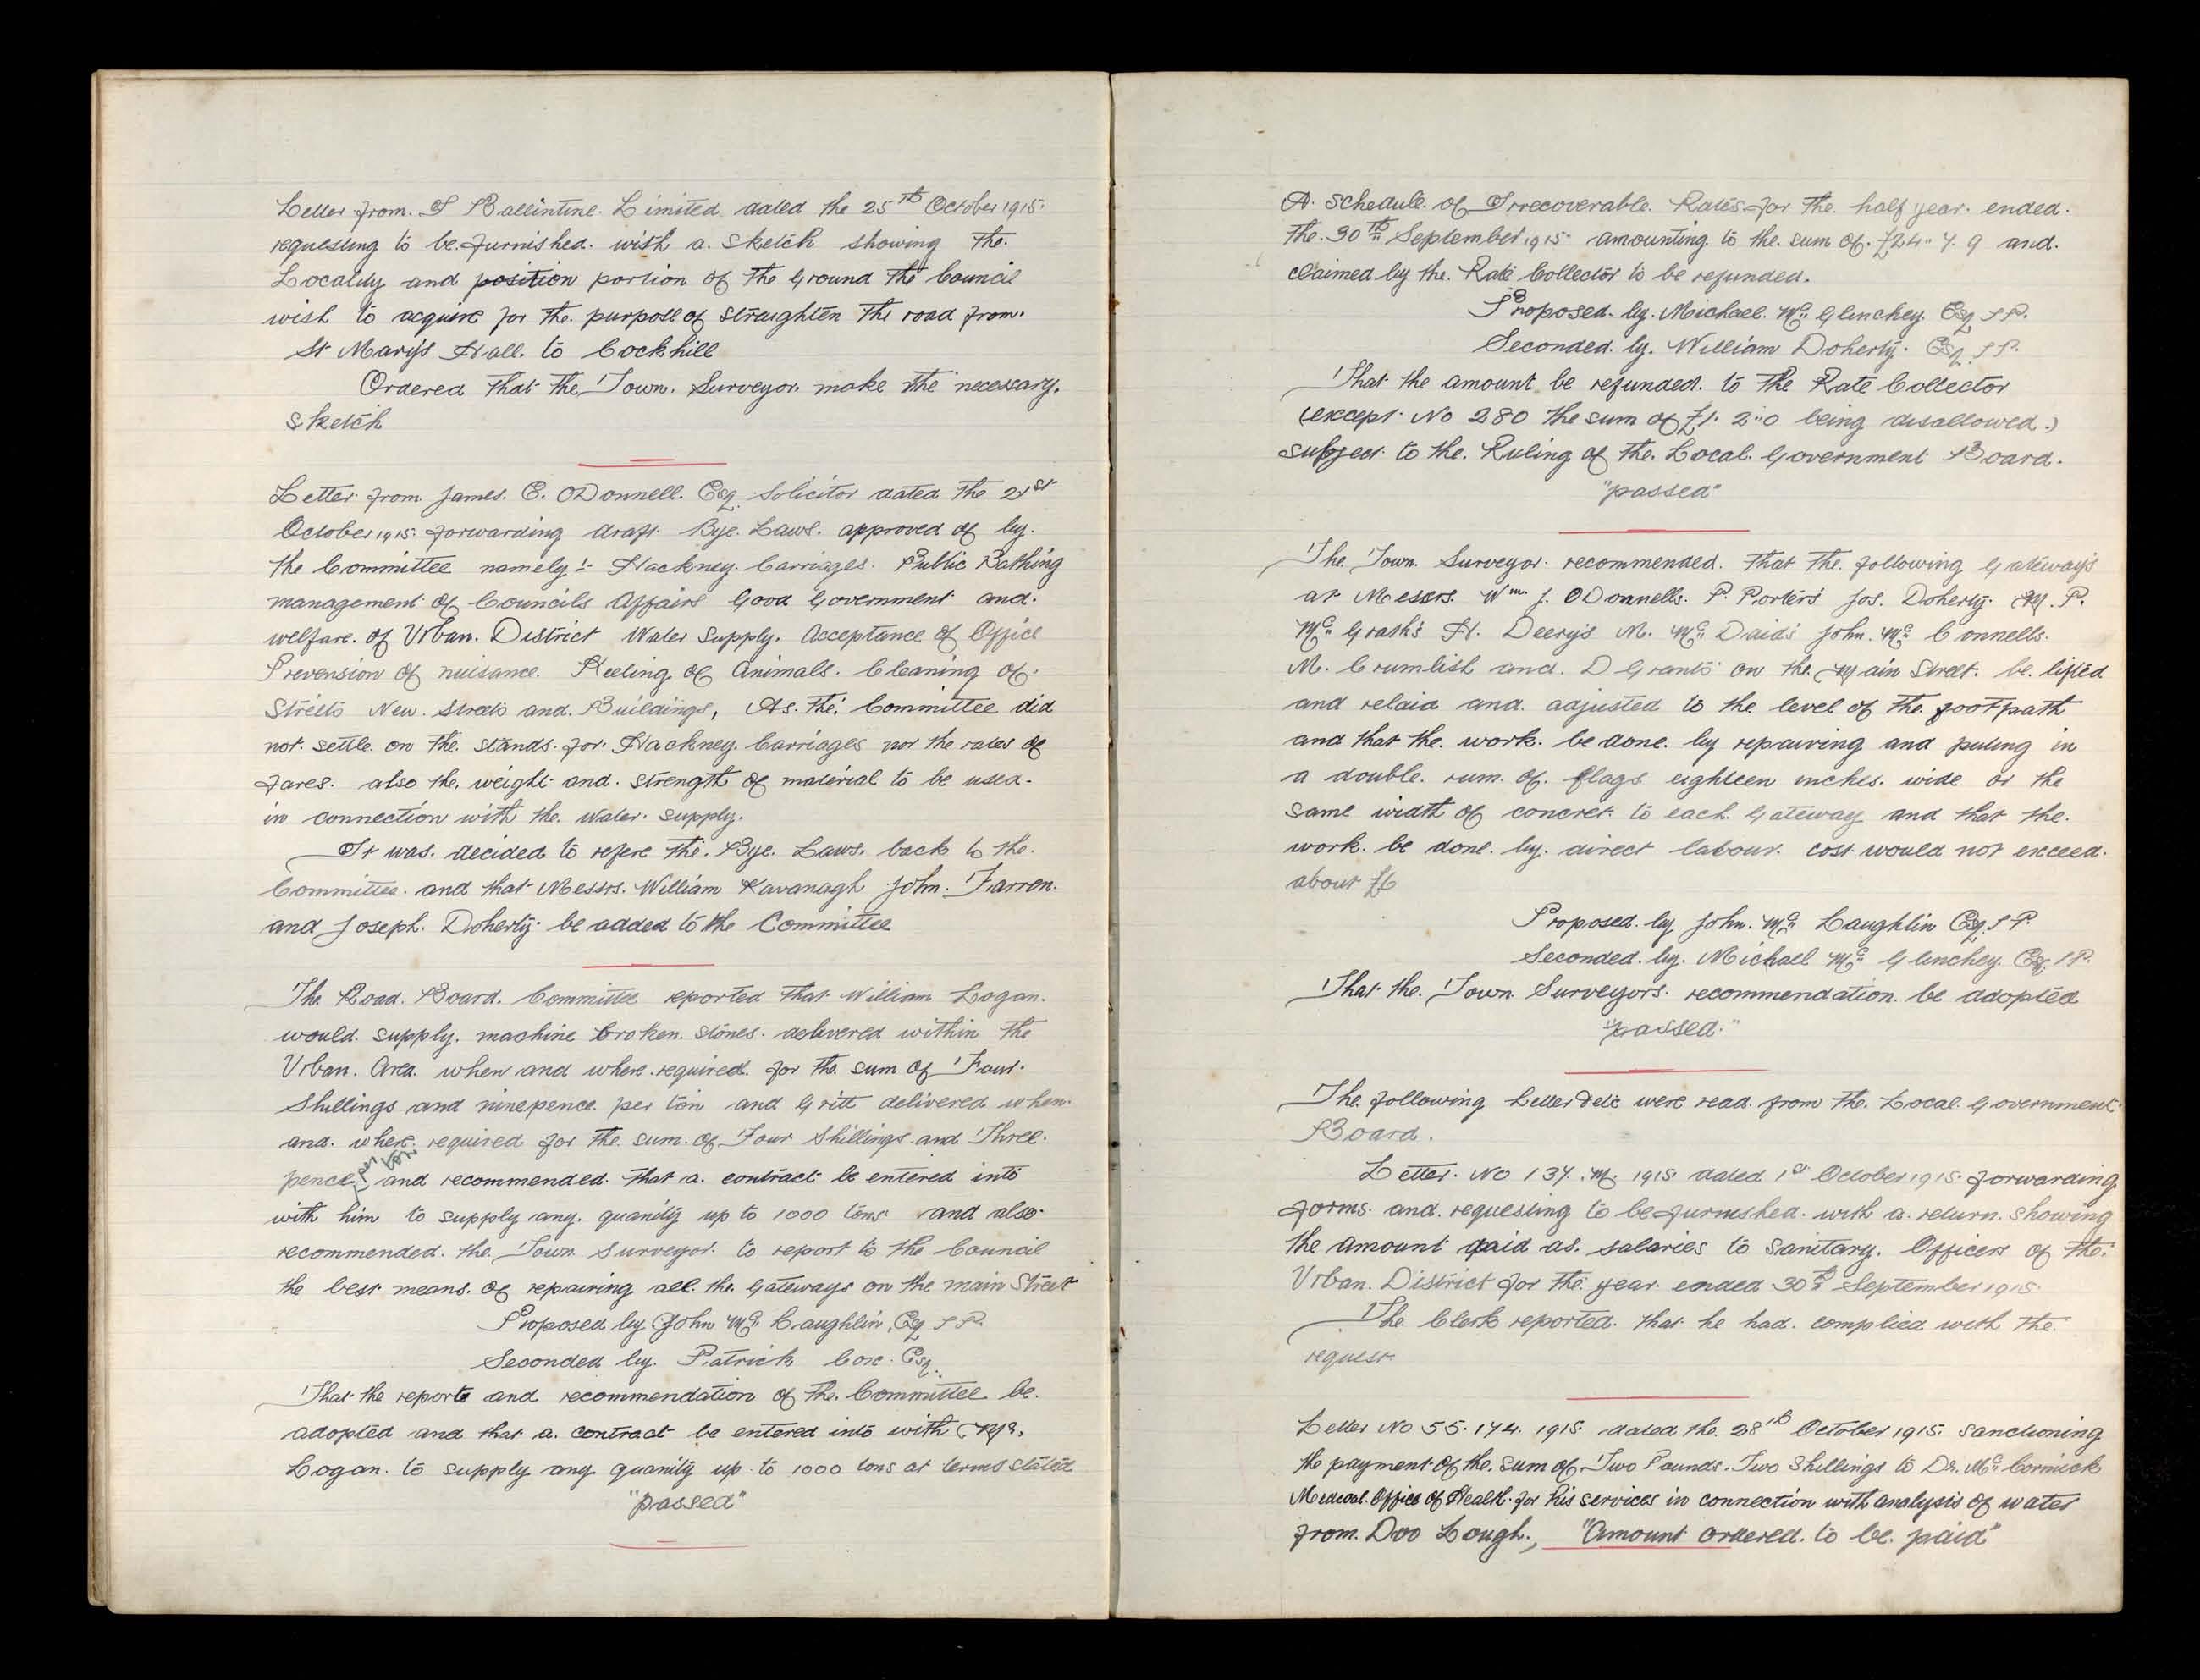 Letter from. J Ballintine. Limited dated the 25th October 1915.
requesting to be furnished. with a. sketch showing the.
Locality and position portion of the Ground the Council
wish to acquire for the. purpose of straighten the road from.
St Mary's Hall. to Cockhill
Ordered that the Town. Surveyor. make the necessary.
sketch
Letter from James. E. O'Donnell. Esq. Solicitor dated the 21st
October 1915. forwarding draft Bye. Laws. approved of by.
the Committee namely:- Hackney. Carriages. Public Bathing
management of Councils Affairs Good Government and.
welfare. of Urban. District Water Supply. Acceptance of Office
Prevension of nuisance. Keeling of Animals. Cleaning of.
Streets New. Streets and. Buildings, As. the. Committee did
not. settle. on the. stands. for. Hackney. Carriages nor the rates of
fares. also the. weight and. strength of material to be used.
in connection with the. water. supply.
It was. decided to refere the. Bye. Laws. back to the.
Committee. and that Messrs. William Kavanagh John. Farren.
and Joseph. Doherty. be added to the Committee
The Road. Board. Committee reported that William Logan.
would. supply. machine broken. stones. delivered within the
Urban. Area. when and where. required. for the. sum of Four.
Shillings and ninepence. per ton and Gritt delivered when.
and. where. required for the. sum. of Four Shillings and Three.
pence per ton and recommended. that a. contract be entered into
with him to supply any. quanity up to 1000 tons and also.
recommended. the. Town Surveyor. to report to the Council
the best means. of repairing all. the. Gateways on the main Street
Proposed by John Mc Laughlin, Esq J P.
Seconded by. Patrick Coxe. Esq.
That the reports and recommendation of the. Committee be.
adopted and that a. contract be entered into with Mr.
Logan. to supply any quanity up to 1000 tons at terms stated
"passed"
A. Schedule. of Irrecoverable. Rates for the. half year. ended.
the. 30th September 1915. amounting to the. sum of. £24" 7. 9 and.
claimed by the. Rate Collector to be refunded.
Proposed. by. Michael. Mc Glinchey. Esq J P.
Seconded. by. William Doherty. Esq J P.
That the amount be refunded. to the Rate Collector
(except. No 280 the sum of £1. 2"0 being disallowed.)
subject to the. Ruling of the. Local. Government Board.
"passed"
The. Town. Surveyor. recommended. that the. following Gateways
at Messrs. Wm J. O'Donnells. P. Porters Jos. Doherty. M. P.
Mc Grath's H. Deery's M. Mc Daids John. Mc Connells.
M. Crumlish and. D Grants on the. Main Street. be. lifted
and relaid and. adjusted to the level of the footpath
and that the. work. be done. by repairing and puting in
a double. rum. of. flags eighteen inches. wide or the
same width of concret. to each. Gateway and that the.
work. be done. by. direct labour. cost would not exceed.
about £6
Proposed. by John. Mc Laughlin Esq. J P.
Seconded. by. Michael Mc Glinchey. Esq. J P.
That the. Town Surveyors. recommendation. be adopted
"passed."
The. following Letter were read. from the. Local. Government.
Board.
Letter. No 137. M. 1915 dated 1st October 1915. forwarding
forms. and. requesting to be furnished. with a. return. showing
the amount paid as. salaries to Sanitary. Officers of the.
Urban. District for the. year. ended 30th September 1915.
The. Clerk reported. that he had. complied with the.
request.
Letter No 55. 174. 1915. dated the. 28th October 1915. Sanctioning
the payment of the. sum of Two Pounds. Two Shillings to Dr. Mc Cormick
Medical. Office of Health. for his services in connection with analysis of water
from. Doo Lough., "Amount ordered. to be. paid"